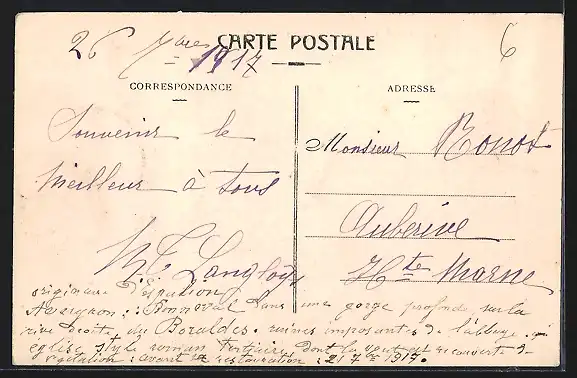 26 Mars 1917
CARTE POSTALE
6
CORRESPONDANCE
ADRESSE
Souvenir le
meilleur à tous
Monsieur Ronot
Auberive
Hte Marne
originaire d'Espalion
Aveyron : Bonneval dans une gorge profonde sur la
rive droite du Boraldes. ruines imposantes de l'abbaye.
église style roman tertiaire, dont la est recouverte de
végétation : avant sa restauration : 1917.